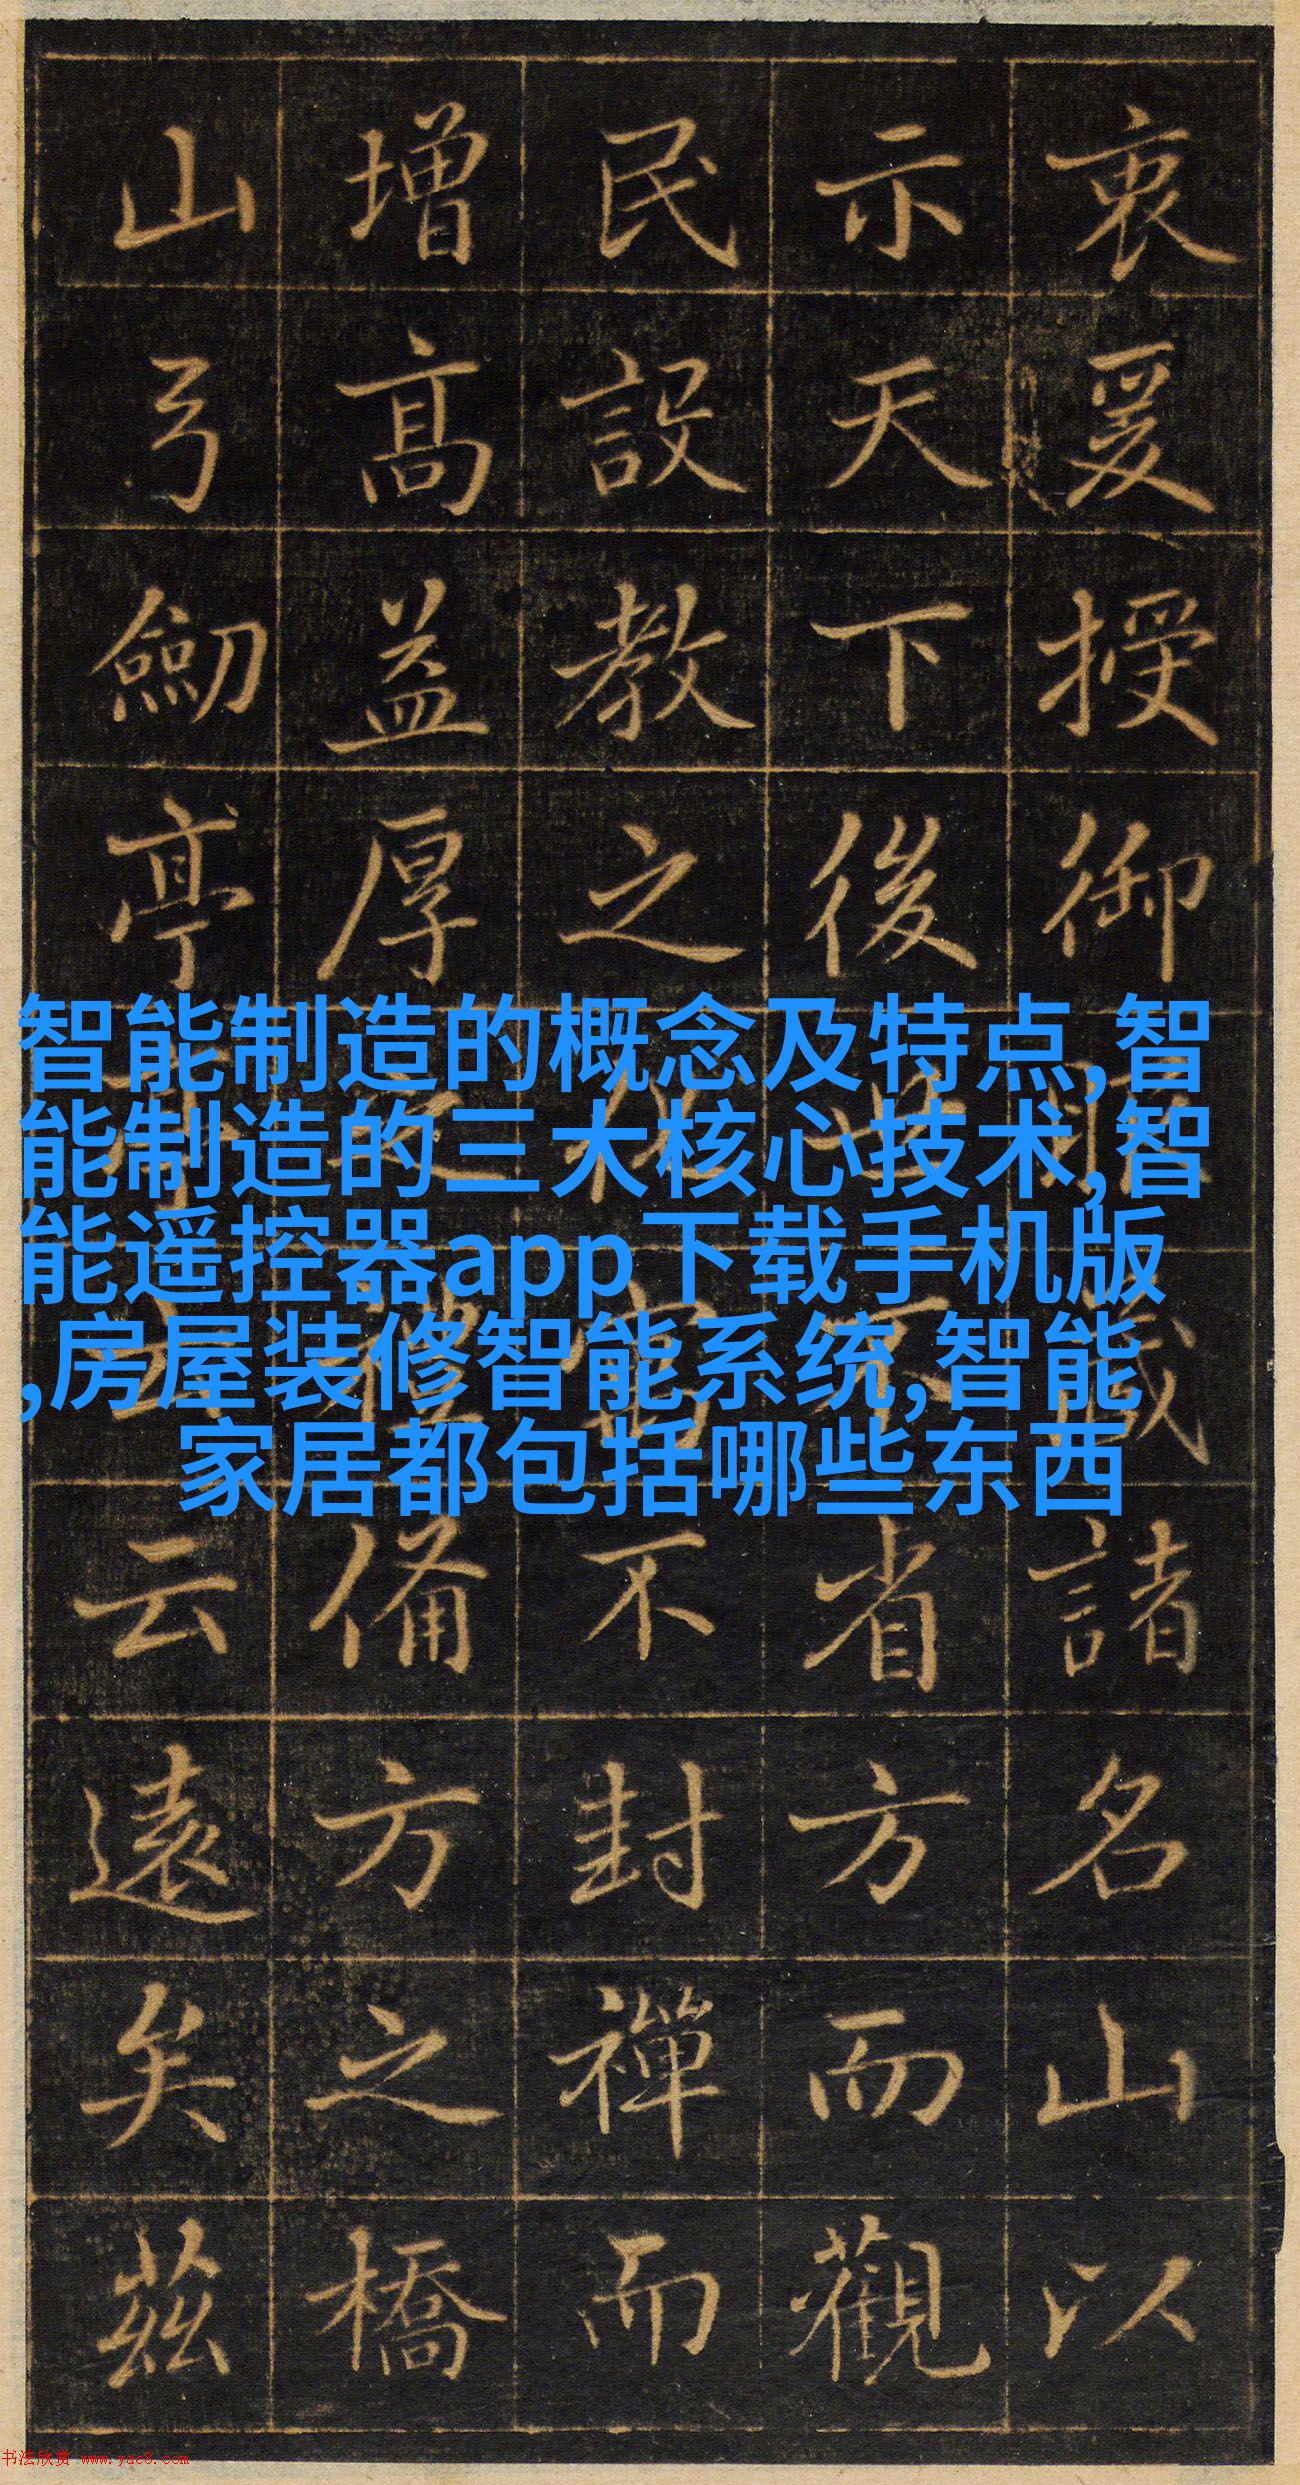 衷爰授御諸名山以
示天下後世不省方而觀
民設教之不封禪而
增高益厚禮備方之橋
山弓劒亭云遠矣茲
智能制造的概念及特点,智
能制造的三大核心技术,智
能遥控器app下载手机版
,房屋装修智能系统,智能
家居都包括哪些东西
书法欣赏 www.yac8.com